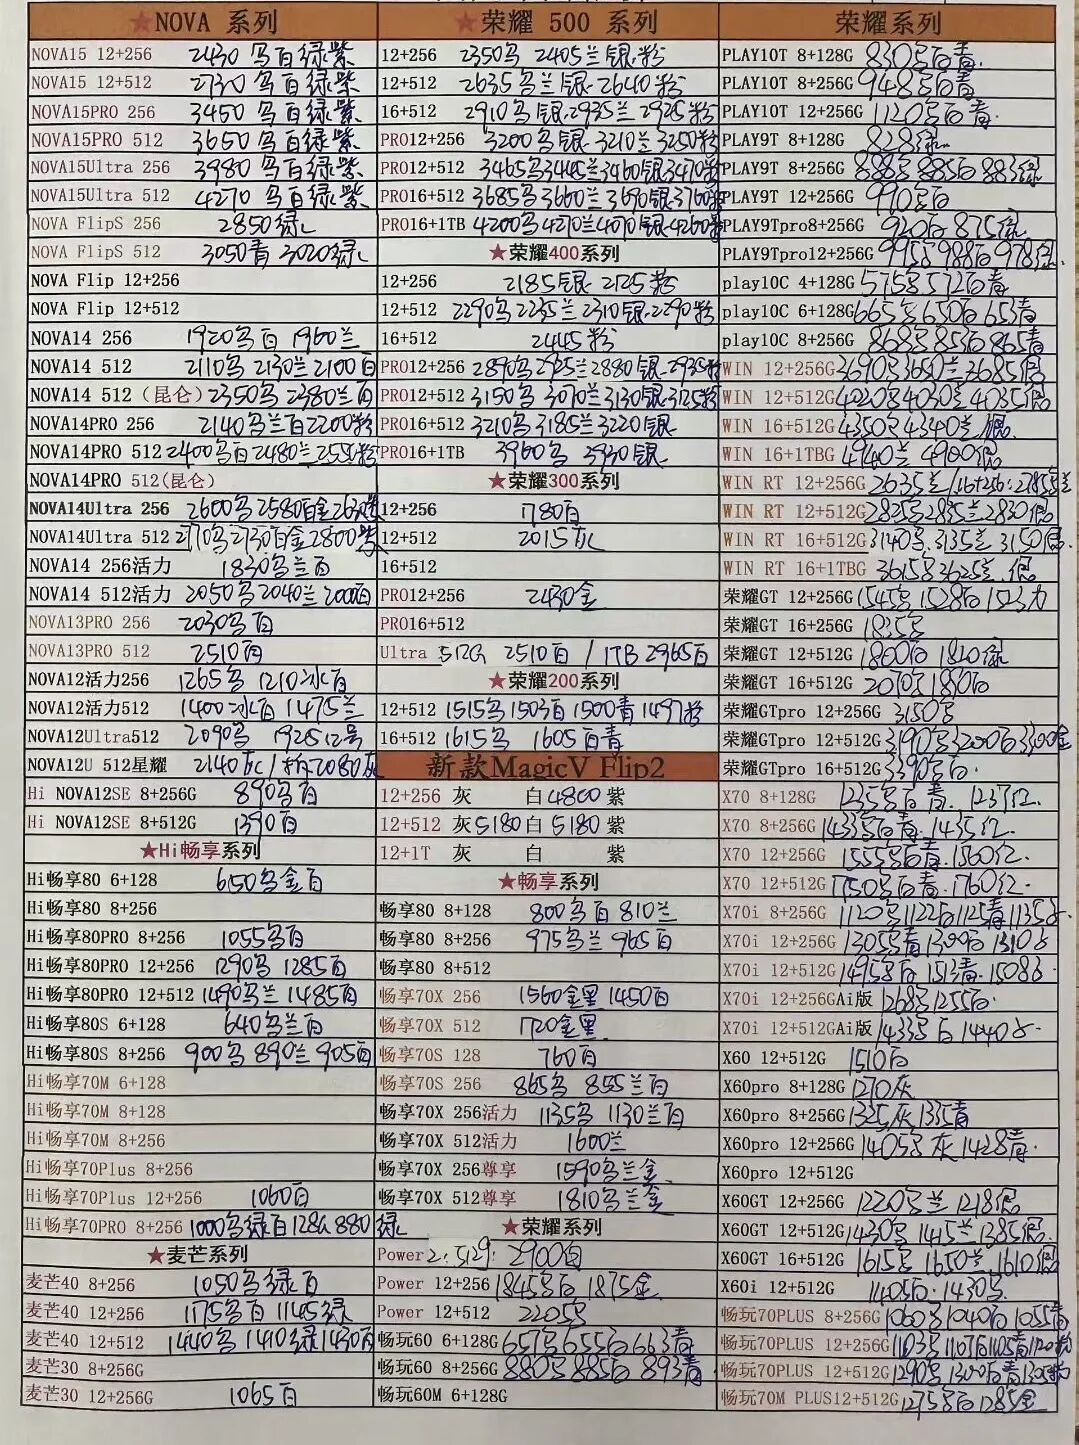 ★NOVA 系列
NOVA15 12+256 2430 乌白绿紫
NOVA15 12+512 2730 乌白绿紫
NOVA15PRO 256 3450 乌白绿紫
NOVA15PRO 512 3650 乌白绿紫
NOVA15Ultra 256 3980 乌白绿紫
NOVA15Ultra 512 4270 乌白绿紫
NOVA FlipS 256 2850绿
NOVA FlipS 512 3050青 3020绿
NOVA Flip 12+256
NOVA Flip 12+512
NOVA14 256 1920乌白 1960兰
NOVA14 512 2110乌 2130兰 2100白
NOVA14 512 (昆仑) 2350乌 2380兰白
NOVA14PRO 256 2140乌兰白 2200粉
NOVA14PRO 512 2400乌白 2480兰
NOVA14PRO 512(昆仑)
NOVA14Ultra 256 2600乌 2580白金 2630紫
NOVA14Ultra 512 2770乌 2730白金 2800紫
NOVA14 256活力 1830乌兰白
NOVA14 512活力 2050乌 2040兰 2000白
NOVA13PRO 256 2030乌白
NOVA13PRO 512 2510白
NOVA12活力256 1265乌 1210冰白
NOVA12活力512 1400冰白 1475兰
NOVA12Ultra512 2090乌 1925 12号
NOVA12U 512星耀 2140灰/拆2080灰
Hi NOVA12SE 8+256G 890乌白
Hi NOVA12SE 8+512G 1390白
★Hi畅享系列
Hi畅享80 6+128 650乌金白
Hi畅享80 8+256
Hi畅享80PRO 8+256 1055乌白
Hi畅享80PRO 12+256 1290乌 1285白
Hi畅享80PRO 12+512 1490乌兰 1485白
Hi畅享80S 6+128 640乌兰白
Hi畅享80S 8+256 900乌 890兰 905白
Hi畅享70M 6+128
Hi畅享70M 8+128
Hi畅享70M 8+256
Hi畅享70Plus 8+256
Hi畅享70Plus 12+256 1060白
Hi畅享70PRO 8+256 1000乌绿白 128G 880绿
★麦芒系列
麦芒40 8+256 1050乌绿白
麦芒40 12+256 1175乌白 1145绿
麦芒40 12+512 1440乌 1410绿 1430白
麦芒30 8+256G
麦芒30 12+256G 1065白
★荣耀 500 系列
12+256 2350乌 2405兰银粉
12+512 2635乌兰银 2640粉
16+512 2910乌银 2935兰 2925粉
PRO12+256 3200乌银 3210兰 3250粉
PRO12+512 3465乌 3445兰 3460银 3470粉
PRO16+512 3685乌 3660兰 3690银 3760粉
PRO16+1TB 4200乌 4270兰 4070银 4260粉
★荣耀400系列
12+256 2185银 2125粉
12+512 2290乌 2235兰 2310银 2290粉
16+512 2445粉
PRO12+256 2890乌 2925兰 2880银 2935粉
PRO12+512 3150乌 3070兰 3130银 3125粉
PRO16+512 3210乌 3185兰 3220银
PRO16+1TB 3960乌 3930银
★荣耀300系列
12+256 1780白
12+512 2015灰
16+512
PRO12+256 2430金
PRO16+512
Ultra 512G 2510白 / 1TB 2965白
★荣耀200系列
12+512 1515乌 1503白 1500青 1497粉
16+512 1615乌 1605白青
新款MagicV Flip2
12+256 灰 白4800 紫
12+512 灰5180 白 5180 紫
12+1T 灰 白 紫
★畅享系列
畅享80 8+128 800乌白 810兰
畅享80 8+256 975乌兰 965白
畅享80 8+512
畅享70X 256 1560金黑 1450白
畅享70X 512 1720金黑
畅享70S 128 760白
畅享70S 256 865乌 855兰白
畅享70X 256活力 1135乌 1130兰白
畅享70X 512活力 1600兰
畅享70X 256尊享 1590乌兰金
畅享70X 512尊享 1810乌兰金
★荣耀系列
Power2: 512g: 2900白
Power 12+256 1845乌白 1875金
Power 12+512 2205乌
畅玩60 6+128G 657乌 655白 663青
畅玩60 8+256G 880乌 885白 893青
畅玩60M 6+128G
荣耀系列
PLAY10T 8+128G 830乌白青
PLAY10T 8+256G 948乌白青
PLAY10T 12+256G 1120乌白青
PLAY9T 8+128G 828绿
PLAY9T 8+256G 888乌 885白 883绿
PLAY9T 12+256G 990乌白
PLAY9Tpro8+256G 920白 875绿
PLAY9Tpro12+256G 995乌 988白 978绿
play10C 4+128G 575乌 572白青
play10C 6+128G 665乌 650白 653青
play10C 8+256G 868乌 858白 865青
WIN 12+256G 3690乌 3650兰 3685银
WIN 12+512G 4020乌 4030兰 4035银
WIN 16+512G 4350乌 4340兰银
WIN 16+1TBG 4940兰 4900银
WIN RT 12+256G 2635兰/16+256:2785兰
WIN RT 12+512G 2825乌 2835兰 2830银
WIN RT 16+512G 3140乌 3135兰 3150银
WIN RT 16+1TBG 3615乌 3625兰银
荣耀GT 12+256G 1545乌 1528白
荣耀GT 16+256G 1835乌
荣耀GT 12+512G 1800白 1820绿
荣耀GT 16+512G 2070乌 1890白
荣耀GTpro 12+256G 3150乌
荣耀GTpro 12+512G 3190乌 3200白 3300金
荣耀GTpro 16+512G 3390乌白
X70 8+128G 1235乌白青 1237红
X70 8+256G 1433乌白青 1435红
X70 12+256G 1555乌白青 1560红
X70 12+512G 1750乌白青 1760红
X70i 8+256G 1120乌 1122白 1125青
X70i 12+256G 1305乌青 1300白
X70i 12+512G 1495乌白 1513青
X70i 12+256GAi版 1268乌 1255白
X70i 12+512GAi版 1433乌白
X60 12+512G 1510白
X60pro 8+128G 1270灰
X60pro 8+256G 1325灰 1335青
X60pro 12+256G 1405乌灰 1428青
X60pro 12+512G
X60GT 12+256G 1220乌兰 1218银
X60GT 12+512G 1430乌 1415兰 1385银
X60GT 16+512G 1615乌 1650兰 1610银
X60i 12+512G 1405白 1430乌
畅玩70PLUS 8+256G 1060乌 1040白 1055青
畅玩70PLUS 12+256G 1103乌 1107白 1105青 1120粉
畅玩70PLUS 12+512G 1290乌 1300白青 1305粉
畅玩70M PLUS12+512G 1275乌白 1285金